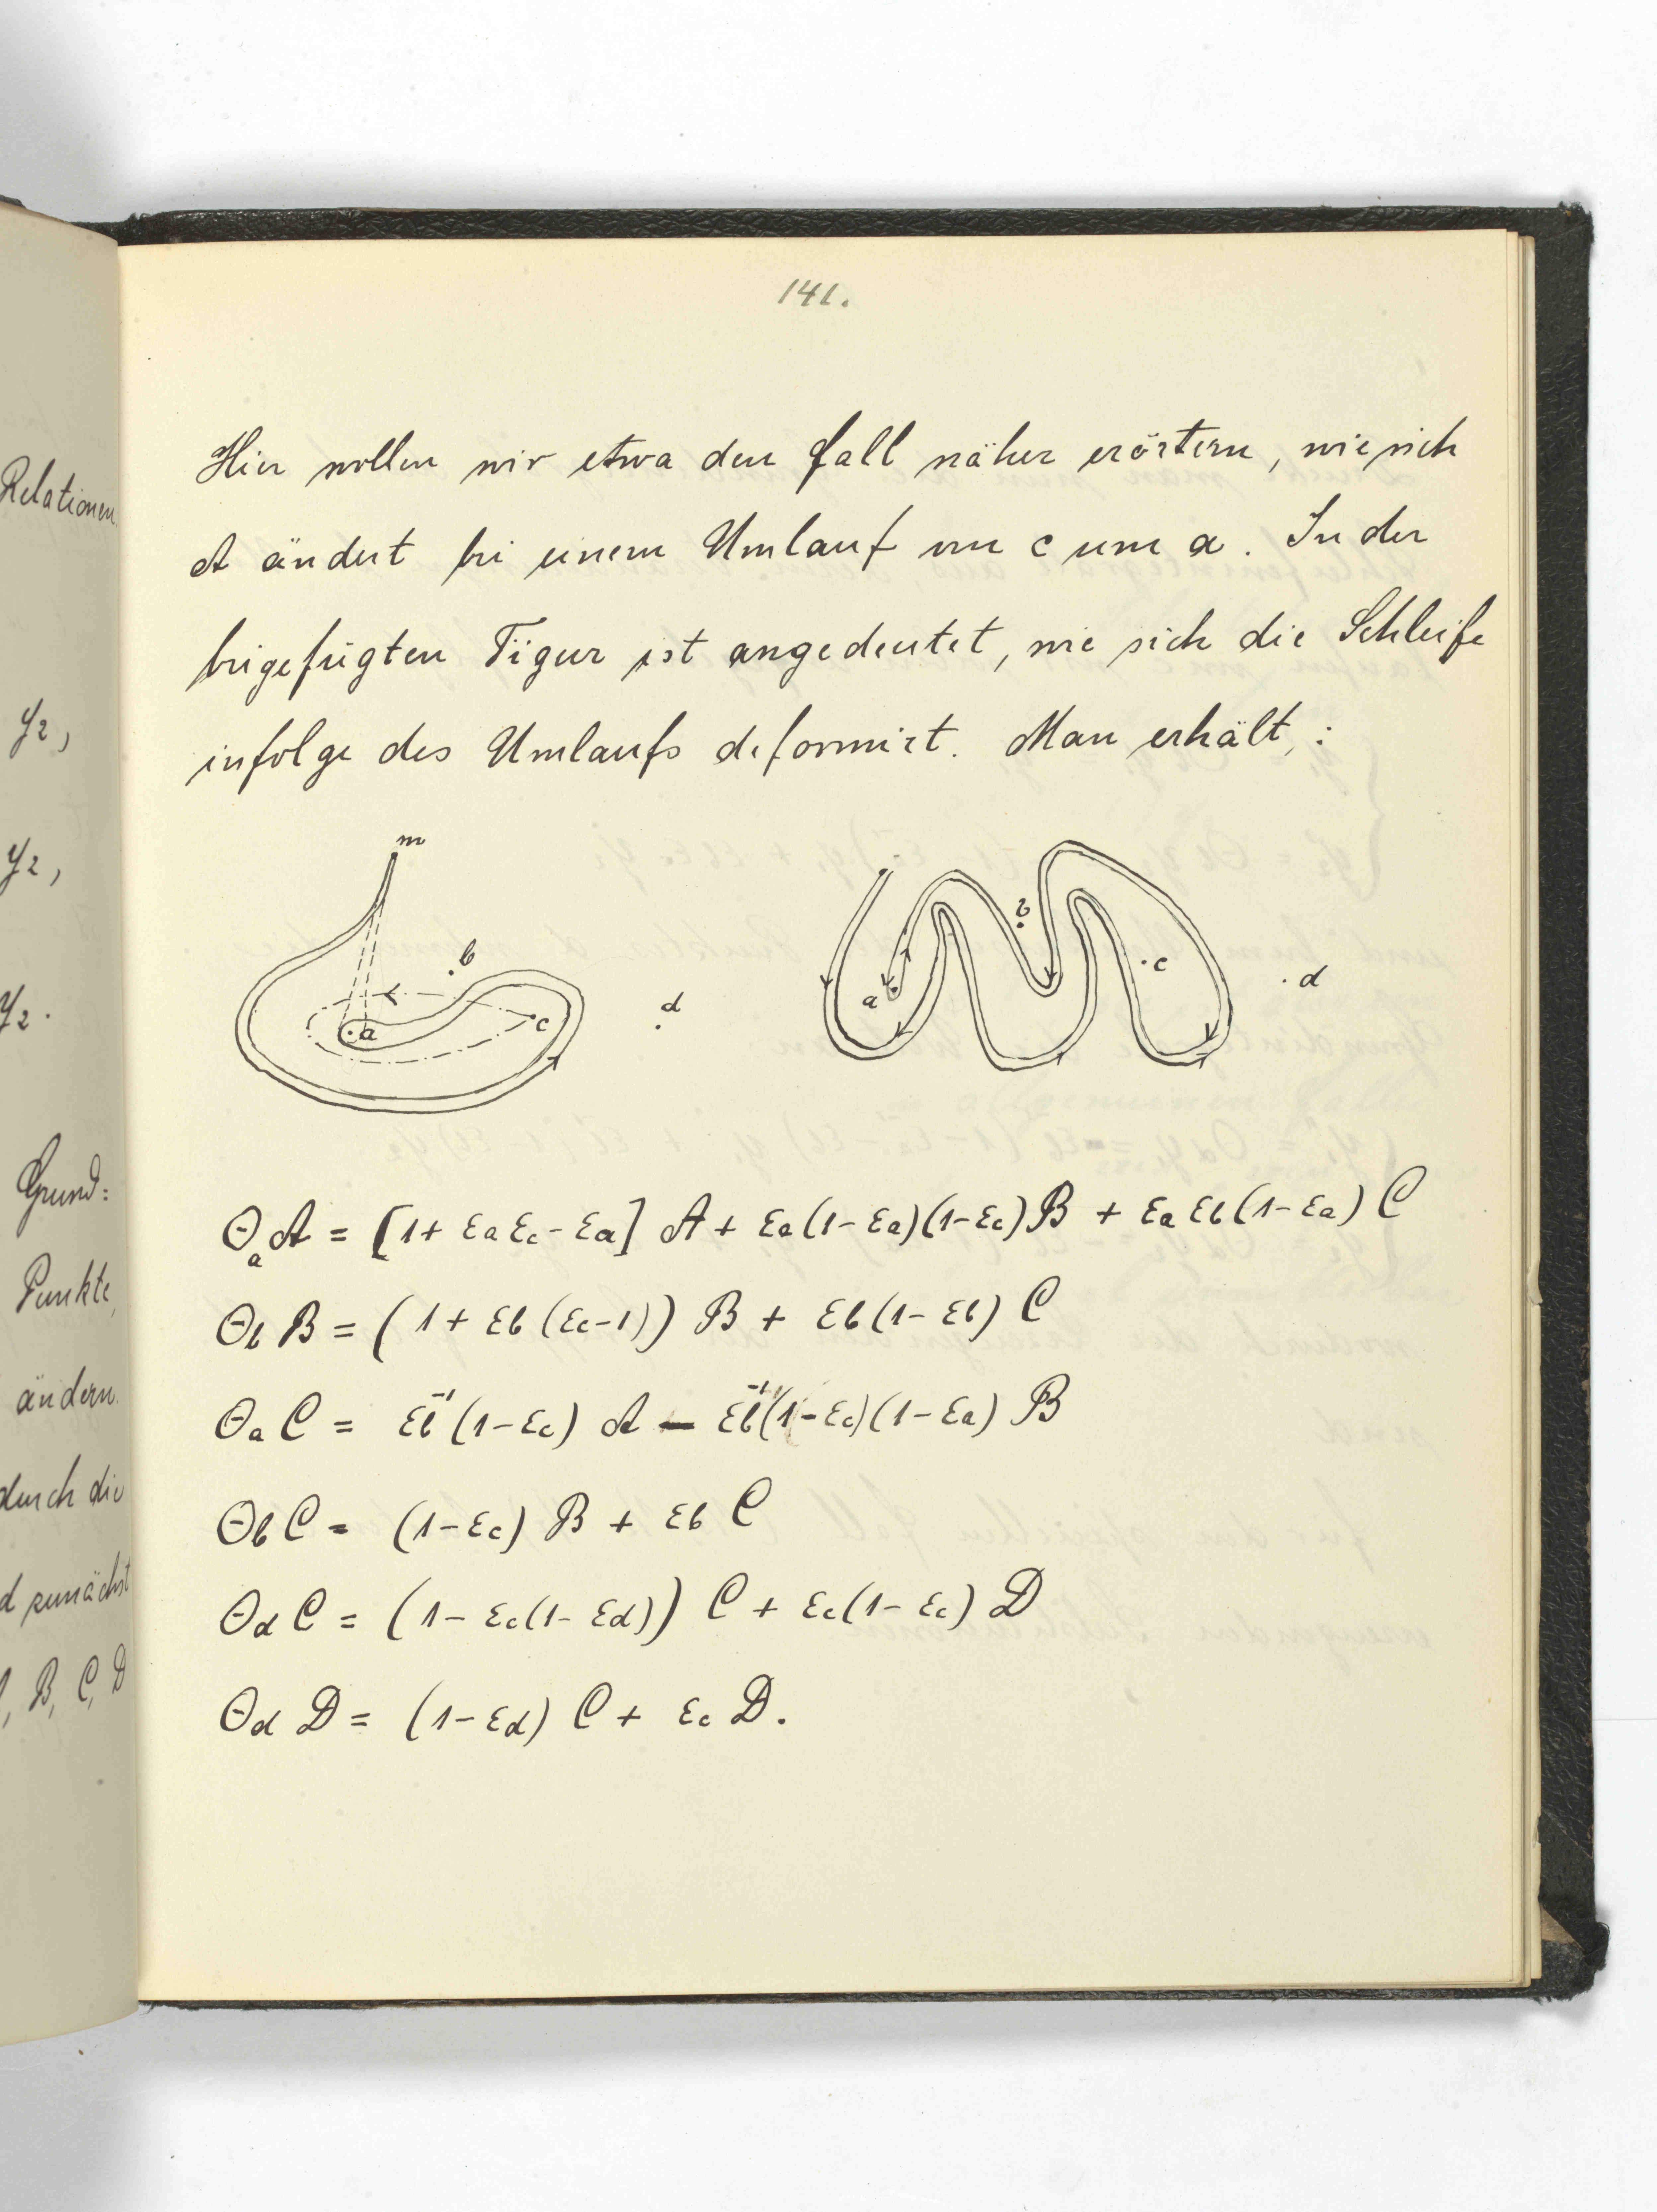 Relationen
y₂,
y₂,
y₂.
Grund=
Punkte,
ändern.
durch die
d zunächst
B, C, D
141.
Hier wollen wir etwa den Fall näher erörtern, wie sich
A ändert bei einem Umlauf von c um a. In der
beigefügten Figur ist angedeutet, wie sich die Schleife
infolge des Umlaufs deformirt. Man erhält:
m
b
a
c
d
b
a
c
d
Θₐ A = [1 + εₐ ε_c - εₐ] A + εₐ (1-εₐ)(1-ε_c) B + εₐ ε_b (1-εₐ) C
Θ_b B = (1 + ε_b (ε_c-1)) B + ε_b (1-ε_b) C
Θₐ C = ε_b⁻¹ (1-ε_c) A - ε_b⁻¹ (1-ε_c)(1-εₐ) B
Θ_b C = (1-ε_c) B + ε_b C
Θ_d C = (1 - ε_c (1-ε_d)) C + ε_c (1-ε_c) D
Θ_d D = (1-ε_d) C + ε_c D.